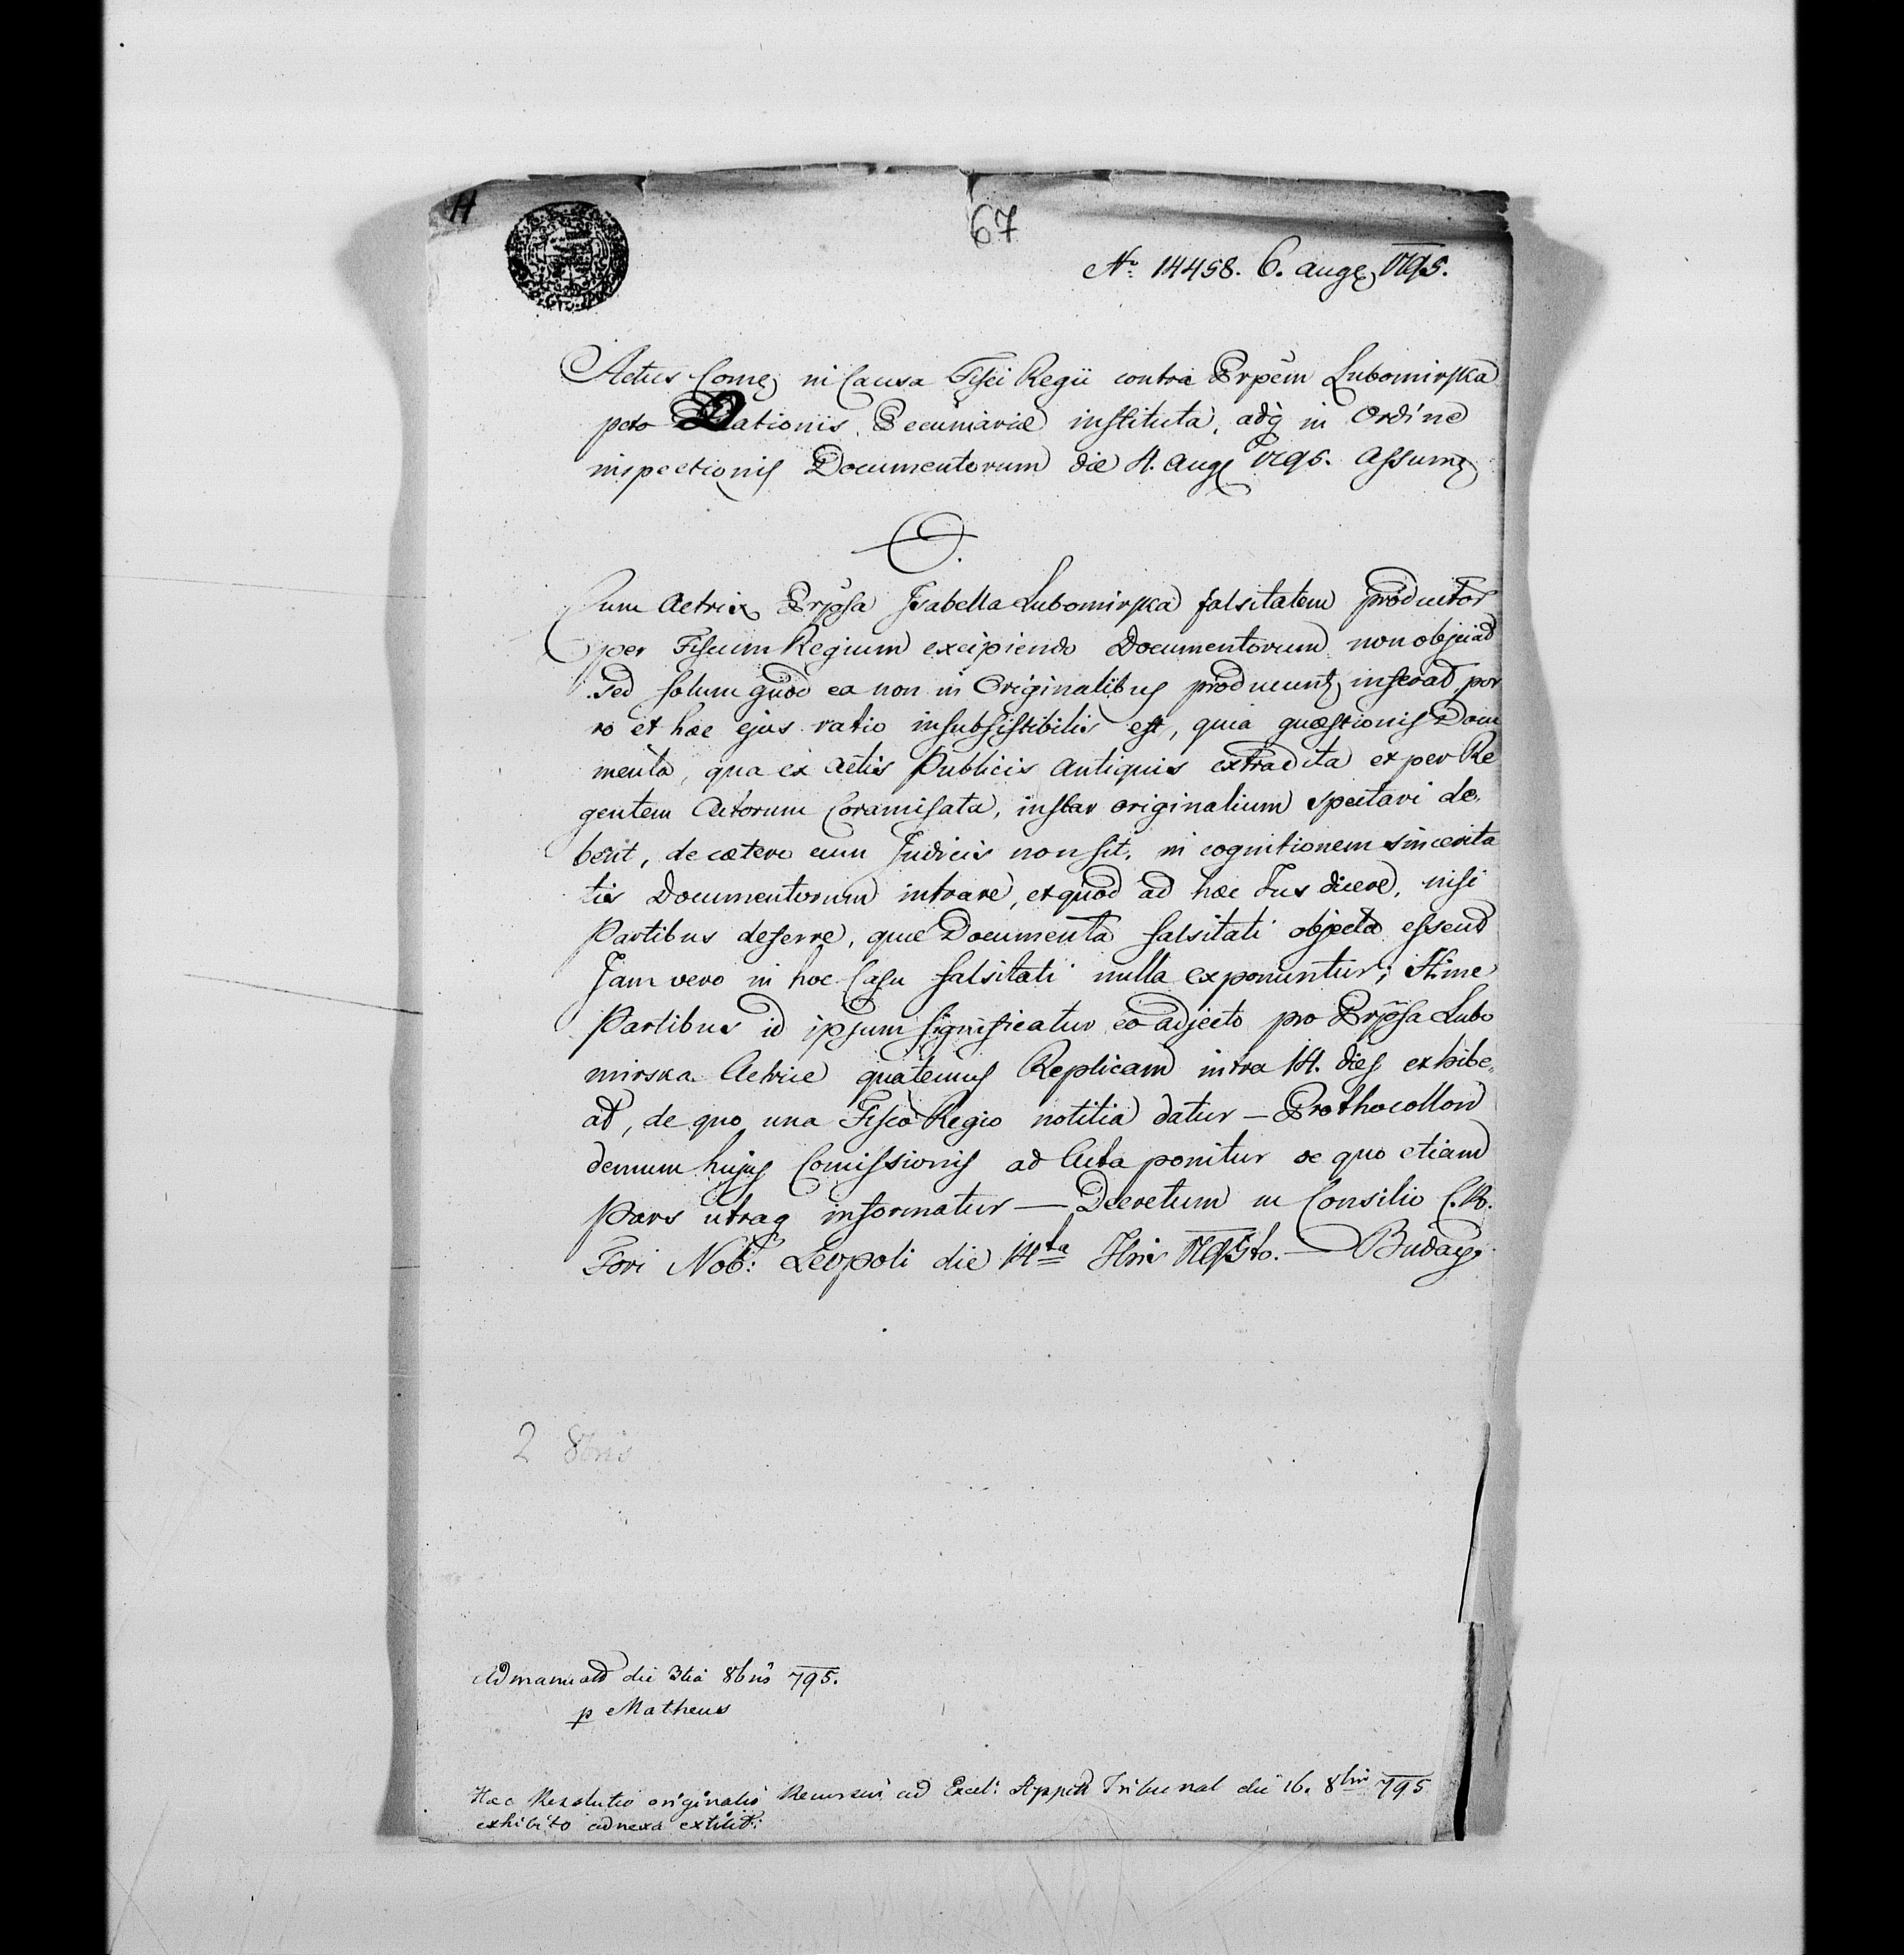 H
67
No. 14458. 6. aug. 795.
Actus Come in Causa Fisci Regii contra Prpem Lubomirska
pcto Dationis Pecuniariæ instituta, adq in Ordine
inspectionis Documentorum die 4. aug 795. assump
Cum Actrix Prpssa Isabella Lubomirska falsitatem productor
per Fiscum Regium excipiendo Documentorum non objiciat
sed solum quod ea non in Originalibus producunt, inferat, por
ro et hæc ejus ratio insubsistibilis est, quia quæstionis Docu
menta, qua ex actis Publicis antiquis extradita et per Re
gentem Actorum Coramisata, instar originalium spectari de,
bent, de cætero cum Judicis non sit, in cognitionem sincerita
tis Documentorum intrare, et quod ad hæc Jus dicere, nisi
Partibus deferre, quæ Documenta falsitati objecta essent
Jam vero in hoc Casu falsitati nulla exponuntur; Hinc
Partibus id ipsum significatur eo adjecto pro Prpssa Lubo
mirska Actrice quatenus Replicam intra 14. dies exhibe,
at, de quo una Fisco Regio notitia datur — Prothocollon
demum hujus Comissionis ad Acta ponitur de quo etiam
Pars utraq informatur — Decretum in Consilio C. R.
Fori Nob: Leopoli die 14ta 795to. — Buday
2 8bris
Ad manuat die 3tia 8bris 795.
p Matheus
Hæc Resolutio originalis Recursui ad Excel: Appell Tribunal die 16. 8bris 795
exhibito adnexa extitit: